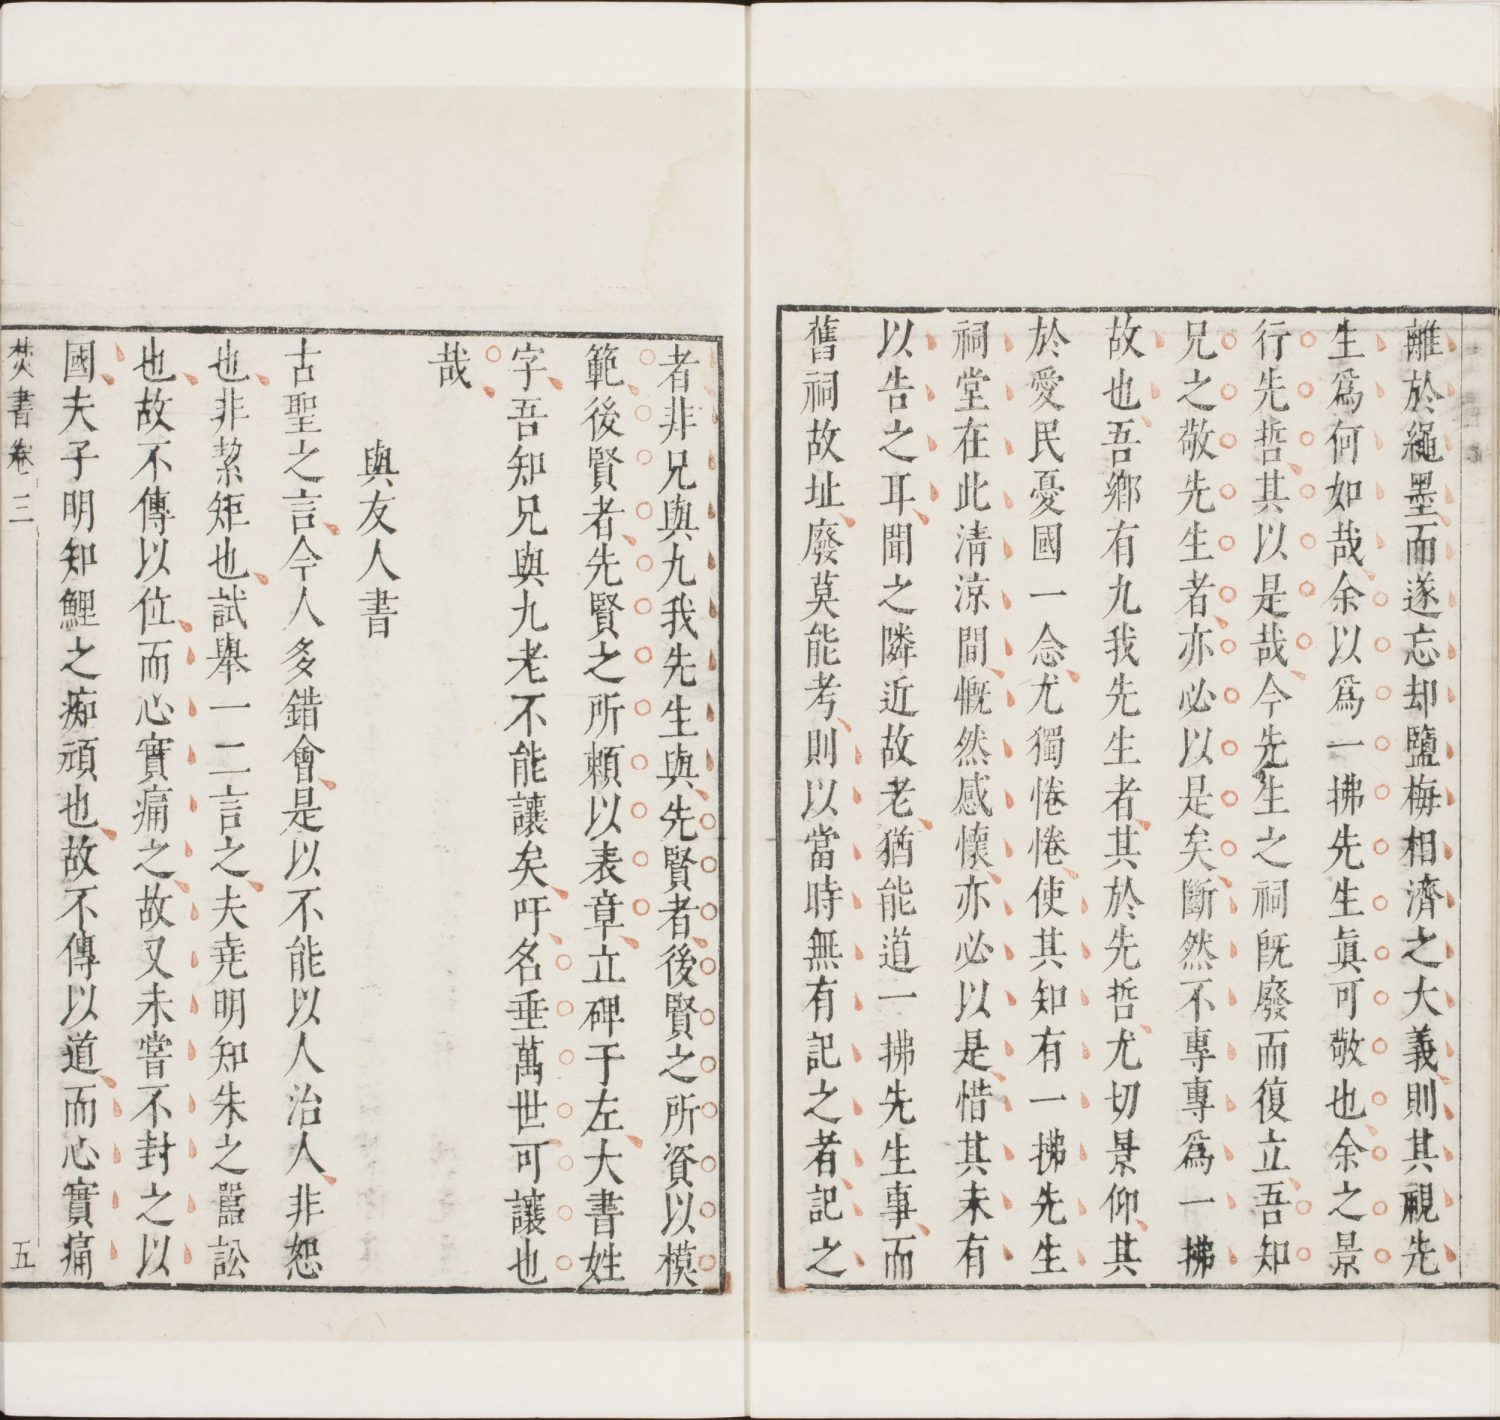 離於繩墨而遂忘却鹽梅相濟之大義則其視先
生爲何如哉余以爲一拂先生眞可敬也余之景
行先哲其以是哉今先生之祠旣廢而復立吾知
兄之敬先生者亦必以是矣斷然不專專爲一拂
故也吾鄉有九我先生者其於先哲尤切景仰其
於愛民憂國一念尤獨惓惓使其知有一拂先生
祠堂在此清涼間慨然感懷亦必以是惜其未有
以告之耳聞之隣近故老猶能道一拂先生事而
舊祠故址廢莫能考則以當時無有記之者記之
者非兄與九我先生與先賢者後賢之所資以模
範後賢者先賢之所賴以表章立碑于左大書姓
字吾知兄與九老不能讓矣吁名垂萬世可讓也
哉
與友人書
古聖之言今人多錯會是以不能以人治人非恕
也非絜矩也試舉一二言之夫堯明知朱之嚚訟
也故不傳以位而心實痛之故又未嘗不封之以
國夫子明知鯉之痴頑也故不傳以道而心實痛
焚書卷三
五